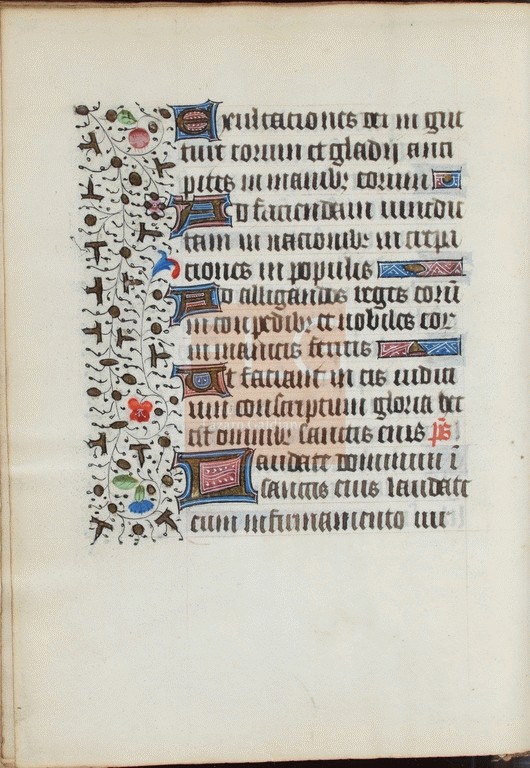 Exultationes dei in gut
ture eorum et gladij anci
pites in manibꝫ eorum
Ad faciendam vindic
tam in nationibꝫ increpa
tiones in populis
Ad alligandos reges eorū
in conpedibꝫ et nobiles eor
in manicis ferreis
Ut faciant in eis iudici
um conscriptum gloria hec
est omnibꝫ sanctis eius p̄s
Laudate dominum ī
sanctis eius laudate
eum in firmamento vir